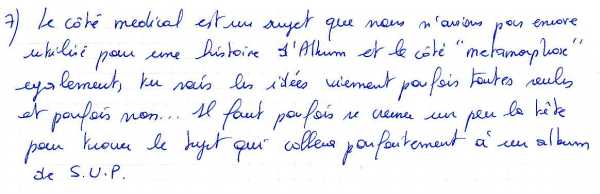 7) Le côté medical est un sujet que nous n'avions pas encore
utilisé pour une histoire d'Album et le côté "metamorphose"
egalement, tu sais les idées viennent parfois toutes seules
et parfois non... Il faut parfois se creuser un peu la tête
pour trouver le sujet qui collera parfaitement à un album
de S.U.P.